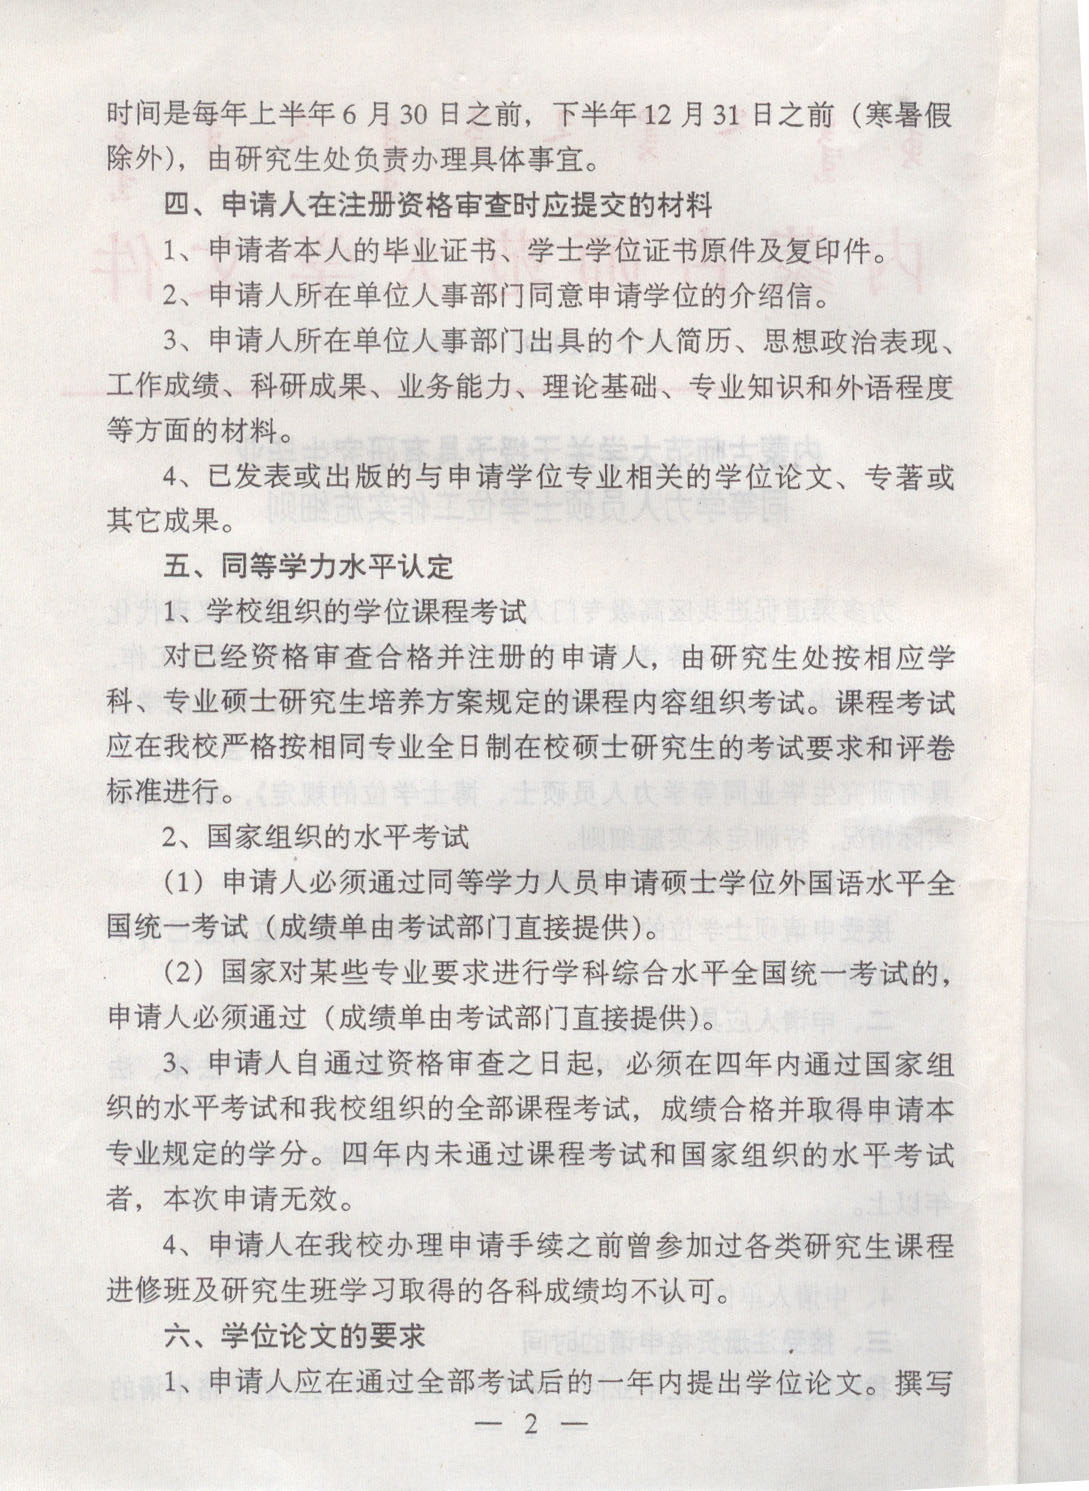 时间是每年上半年6月30日之前，下半年12月31日之前（寒暑假
除外），由研究生处负责办理具体事宜。
四、申请人在注册资格审查时应提交的材料
1、申请者本人的毕业证书、学士学位证书原件及复印件。
2、申请人所在单位人事部门同意申请学位的介绍信。
3、申请人所在单位人事部门出具的个人简历、思想政治表现、
工作成绩、科研成果、业务能力、理论基础、专业知识和外语程度
等方面的材料。
4、已发表或出版的与申请学位专业相关的学位论文、专著或
其它成果。
五、同等学力水平认定
1、学校组织的学位课程考试
对已经资格审查合格并注册的申请人，由研究生处按相应学
科、专业硕士研究生培养方案规定的课程内容组织考试。课程考试
应在我校严格按相同专业全日制在校硕士研究生的考试要求和评卷
标准进行。
2、国家组织的水平考试
（1）申请人必须通过同等学力人员申请硕士学位外国语水平全
国统一考试（成绩单由考试部门直接提供）。
（2）国家对某些专业要求进行学科综合水平全国统一考试的，
申请人必须通过（成绩单由考试部门直接提供）。
3、申请人自通过资格审查之日起，必须在四年内通过国家组
织的水平考试和我校组织的全部课程考试，成绩合格并取得申请本
专业规定的学分。四年内未通过课程考试和国家组织的水平考试
者，本次申请无效。
4、申请人在我校办理申请手续之前曾参加过各类研究生课程
进修班及研究生班学习取得的各科成绩均不认可。
六、学位论文的要求
1、申请人应在通过全部考试后的一年内提出学位论文。撰写
— 2 —